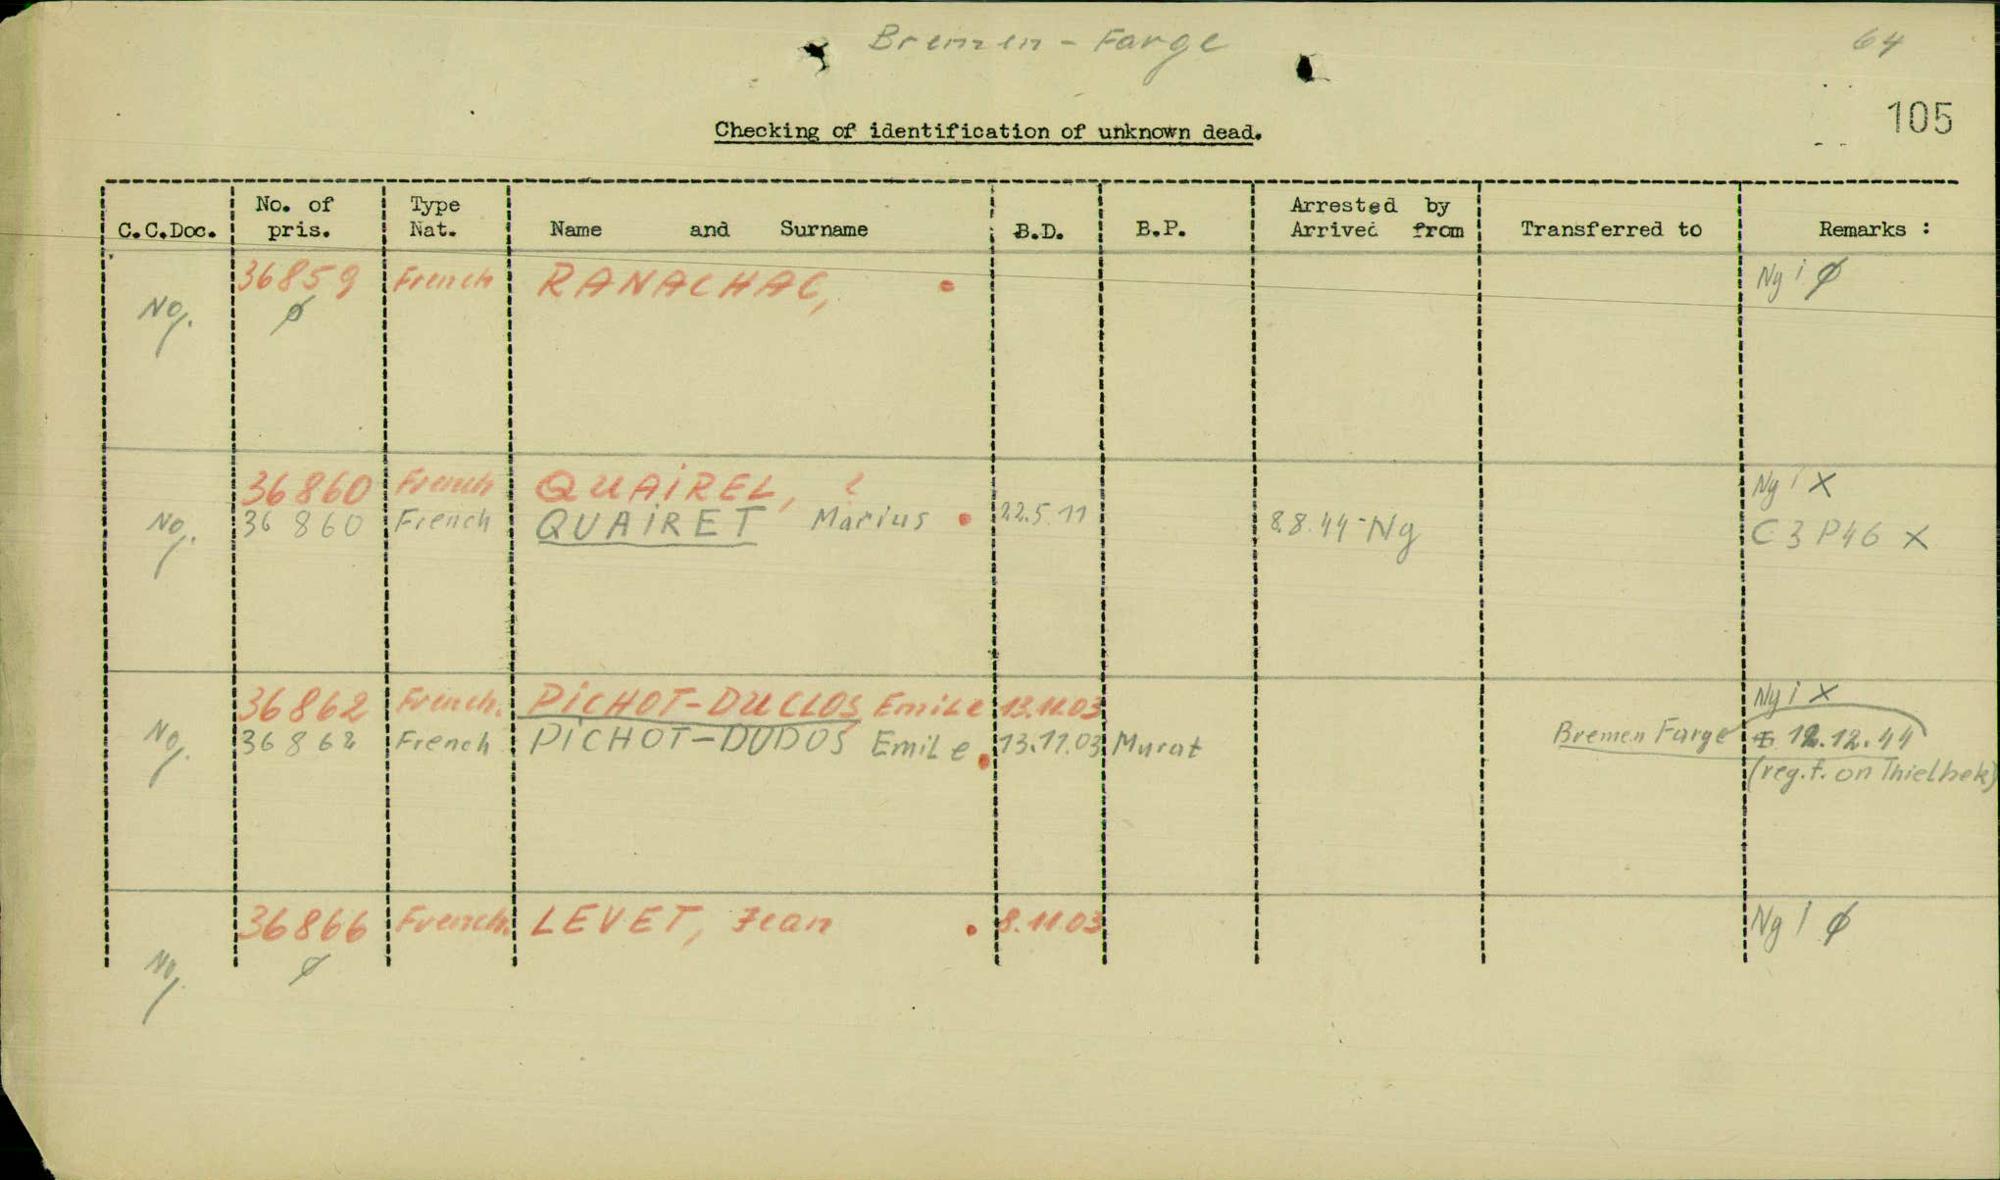 Bremen - Farge
64
105
Checking of identification of unknown dead.
C.C.Doc. No. of pris. Type Nat. Name and Surname B.D. B.P. Arrested by Arrived from Transferred to Remarks :
36859 French RANACHAC, Ng i Ø
No. Ø
36860 French QUAIREL, ? Ng i X
No. 36 860 French QUAIRET Marius 22.5.11 8.8.44-Ng C 3 P46 X
36862 French. PICHOT-DUCLOS Emile 13.11.03 Ng i X
No. 36862 French PICHOT-DUDOS Emile 13.11.03 Murat Bremen Farge 12.12.44
(reg.f. on Thielbek)
36866 French. LEVET, Jean 8.11.03 Ng i Ø
No. Ø